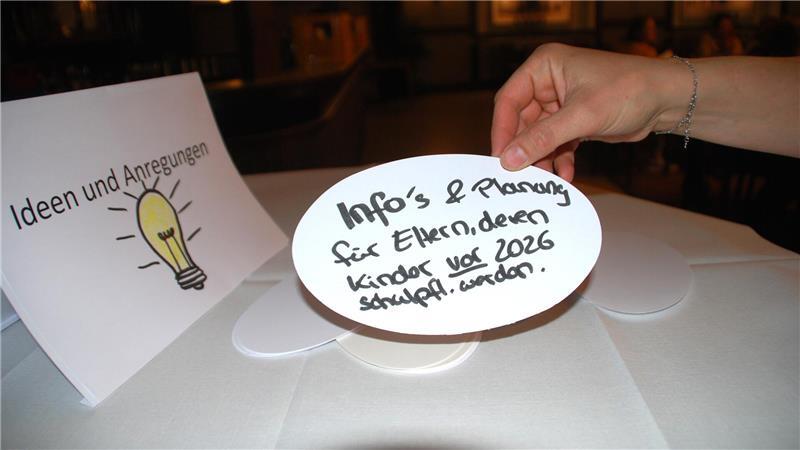 Ideen und Anregungen
Info's & Planung
für Eltern, deren
Kinder vor 2026
schulpfl. werden.